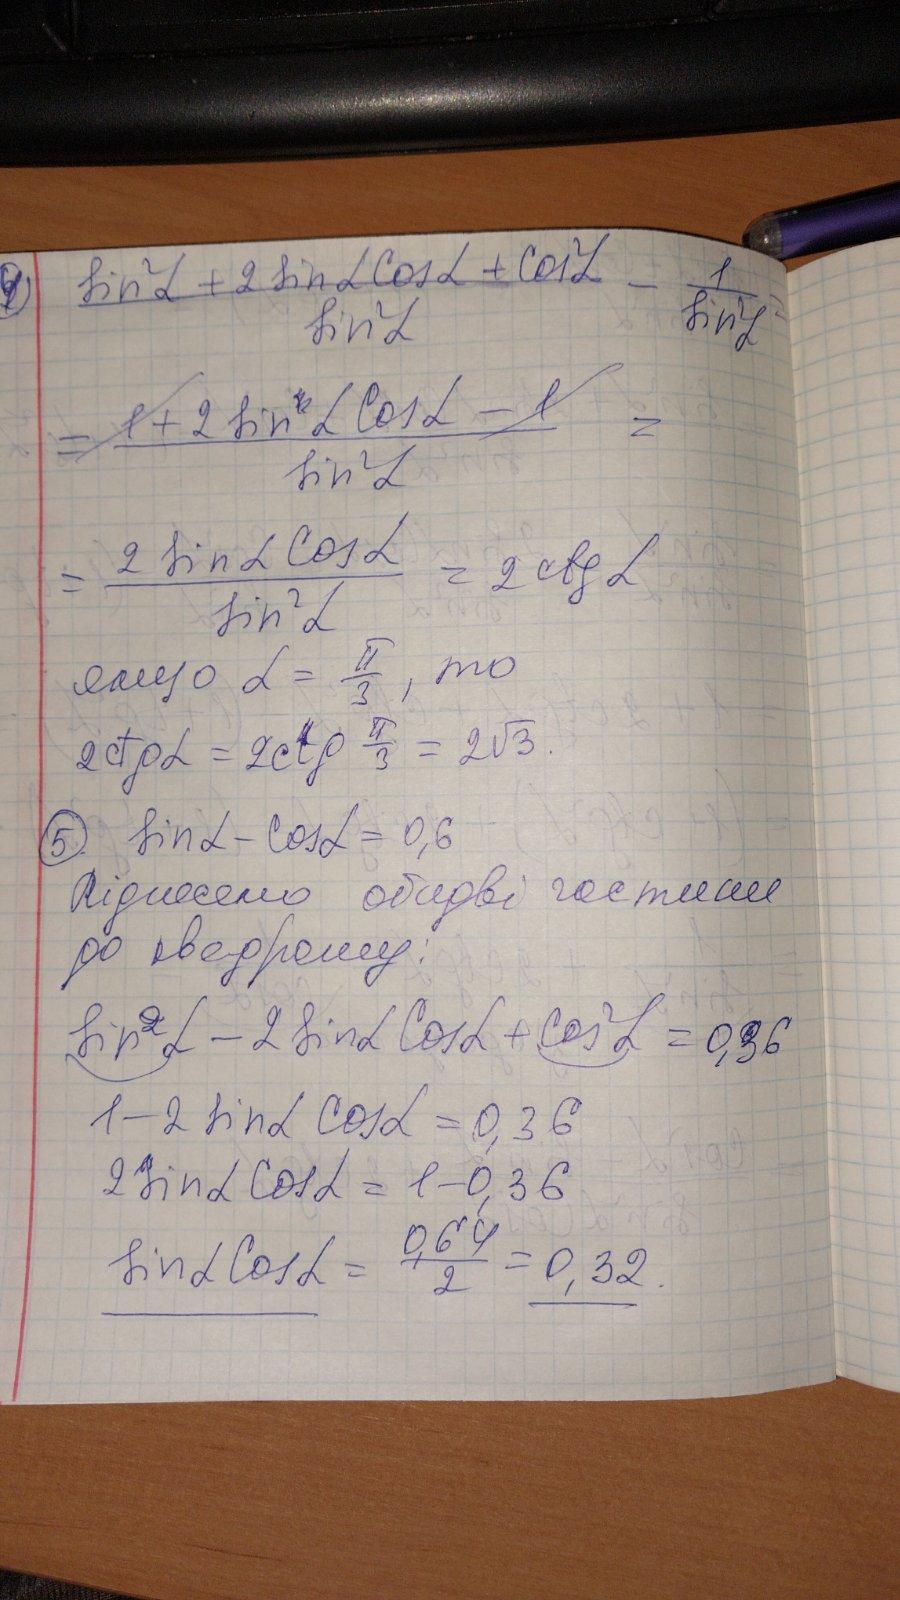 sin²α + 2 sinα cosα + cos²α / sin²α − 1 / sin²α =
= 1 + 2 sinα cosα − 1 / sin²α =
= 2 sinα cosα / sin²α = 2 ctg α
якщо α = π/3, то
2ctgα = 2ctg π/3 = 2√3.
5. sinα − cosα = 0,6
Піднесемо обидві частини
до квадрату:
sin²α − 2 sinα cosα + cos²α = 0,36
1 − 2 sinα cosα = 0,36
2 sinα cosα = 1 − 0,36
sinα cosα = 0,64 / 2 = 0,32.